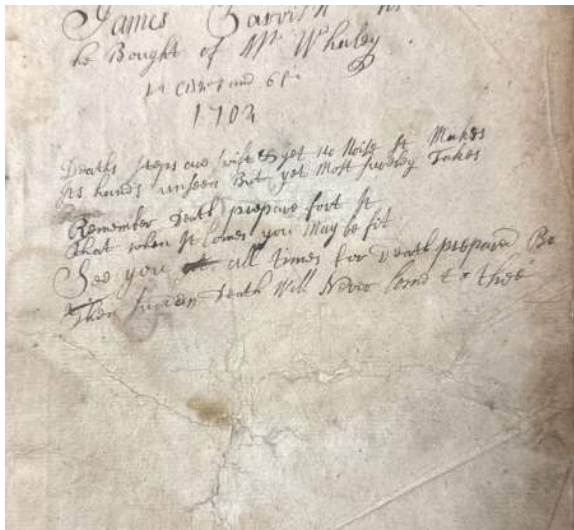 James
he Bought of Mr Whaley
1702
Deaths steps are swift & yet no Noise it Makes
Its hands unseen But yet Most surely Takes
Remember Death prepare fort It
that when It Comes you May be fit
See you all times for Death prepared Be
Then Death Will Never Come to thee